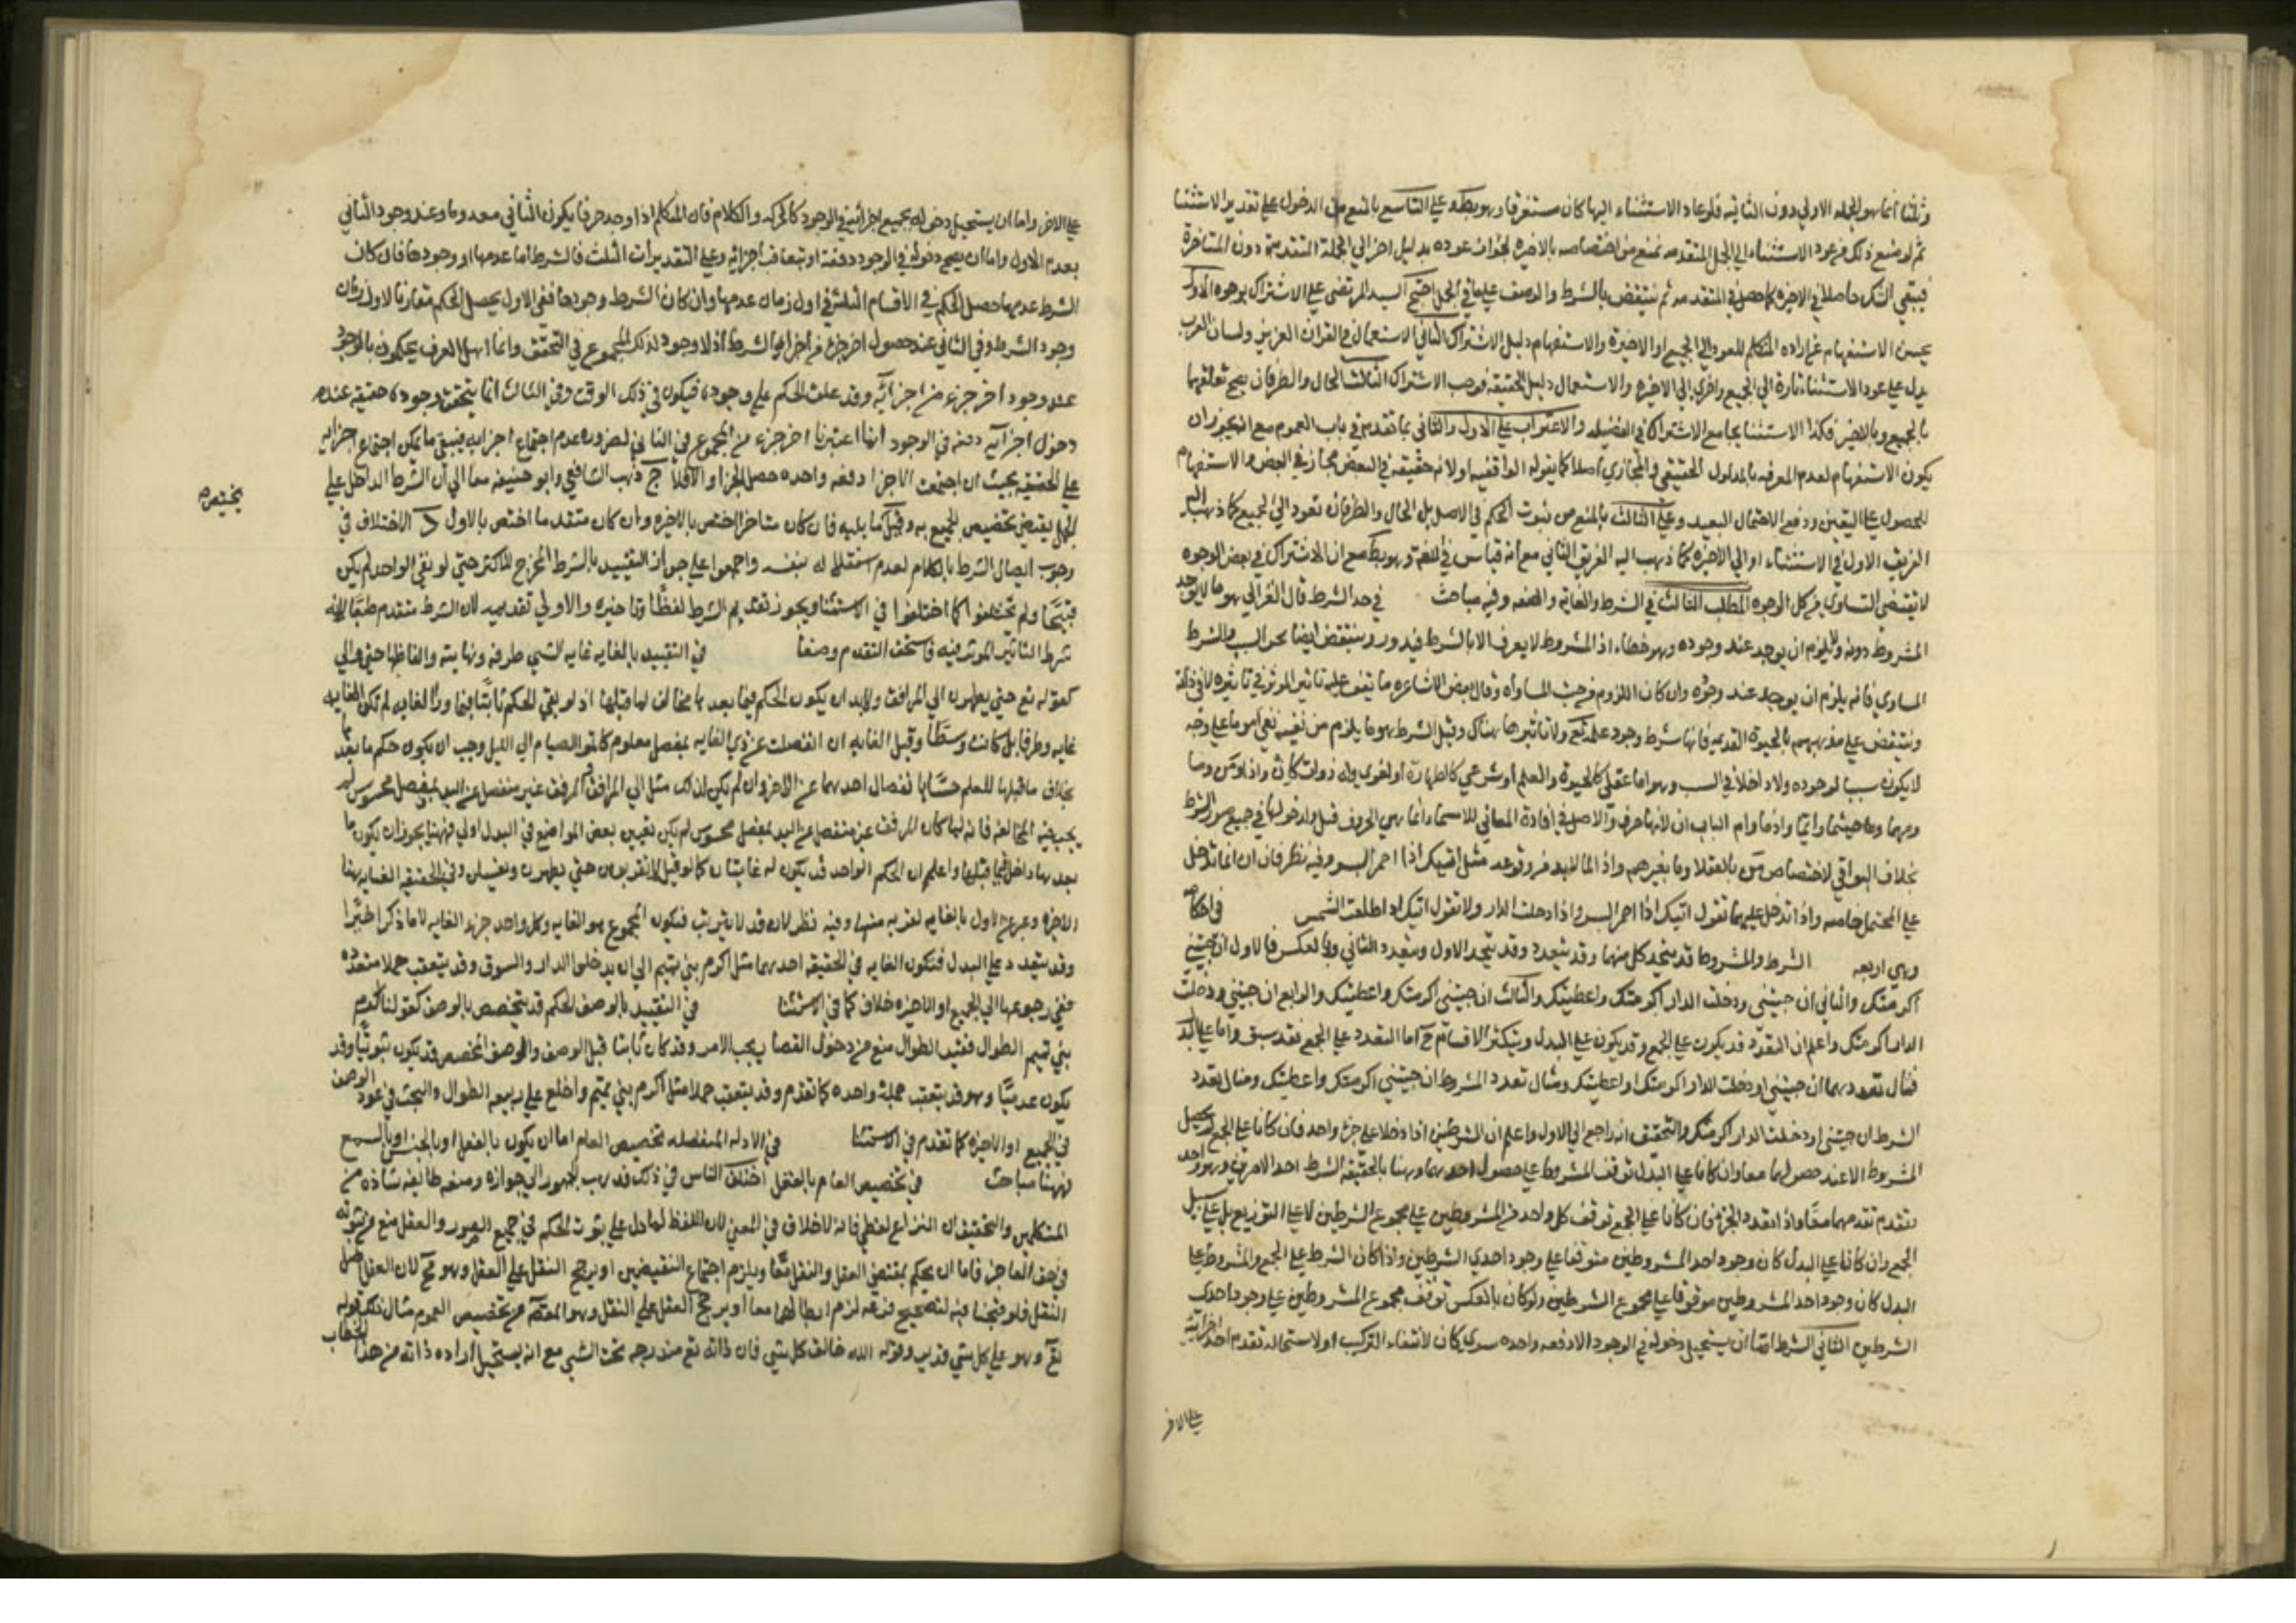 وثلثا انما هو للجمله الاولي دون الثانيه فلو عاد الاستثناء اليها كان مستغرقا وهو بط وعلي التاسع بالمنع من الدخول علي تقدير الاستثناء
ثم لو منع ذلك من عود الاستثناء الي الجمل المتقدمه نمنع من اختصاصه بالاخيره لجواز عوده بدليل اخر الي الجملة المتقدمة دون المتاخرة
فيبقي الشك حاصلا في الاخيرة كما حصل في المتقدمه ثم ينتقض بالشرط والوصف عقيب الجمل احتج السيد المرتضي علي الاشتراك بوجوه الاول
يحسن الاستفهام عن اراده المتكلم للعود الي الجميع او الاخيرة والاستفهام دليل الاشتراك الثاني الاستعمال في القران العزيز ولسان العرب
يدل علي عود الاستثناء تارة الي الجميع واخري الي الاخيره والاستعمال دليل الحقيقه فوجب الاشتراك الثالث الحال والظرفان يصح تعلقهما
بالجميع وبالاخير فكذا الاستثناء بجامع الاشتراك في الفضيله والاعتراب علي الاول والثاني بما تقدم في باب العموم مع انه يجوز ان
يكون الاستفهام لعدم المعرفه بالمدلول الحقيقي والمجازي اصلا كما يقوله الواقفيه او لانه حقيقة في البعض مجاز في البعض والاستفهام
للحصول علي اليقين ودفع الاحتمال البعيد وعلي الثالث بالمنع من ثبوت الحكم في الاصل بل الحال والظرفان تعود الي الجميع كما ذهب اليه
الفريق الاول في الاستثناء او الي الاخيره كما ذهب اليه الفريق الثاني مع انه قياس في اللغه وهو بط مع ان الاشتراك في بعض الوجوه
لا يقتضي التساوي من كل الوجوه المطلب الثالث في الشرط والغاية والصفه وفيه مباحث في حد الشرط قال الغزالي هو ما لا يوجد
المشروط دونه ولا يلزم ان يوجد عند وجوده وهو خطاء اذ المشروط لا يعرف الا بالشرط فيدور وينتقض ايضا بجزء السبب والشرط
المساوي فانه يلزم ان يوجد عند وجوده وان كان اللزوم من حيث المساواه وقال بعض الاشاعره ما يقف عليه تاثير المؤثر في تاثيره لا في ذاته
وينتقض علي مذهبهم بالحيوة القديمه فانها شرط وجود علمه تع ولا تاثير هناك وقيل الشرط هو ما يلزم من نفيه نفي امر ما علي وجه
لا يكون سببا لوجوده ولا داخلا في السبب وهو اما عقلي كالحيوة والعلم او شرعي كالطهارة او لغوي وله ادوات كان واذا ومن وما
ومهما وحيثما واينما واذما وام الباب ان لانها حرف والاصل في افادة المعاني للاسماء انما هي الحروف قيل ولدخولها في جميع صور الشرط
بخلاف البواقي لاختصاص من بالعقلا وما بغيرهم واذا لما لابد من وقوعه مثل اتيك اذا احمر البسر وفيه نظر فان ان انما تدخل
علي المحتمل خاصه واذا تدخل عليهما تقول اتيك اذا احمر البسر واذا دخلت الدار ولا تقول اتيك ان طلعت الشمس في احكامه
وهي اربعه الشرط والمشروط قد يتحد كل منهما وقد يتعدد وقد يتحد الاول ويتعدد الثاني وبالعكس فالاول ان جئتني
اكرمتك والثاني ان جئتني ودخلت الدار اكرمتك واعطيتك والثالث ان جئتني اكرمتك واعطيتك والرابع ان جئتني ودخلت
الدار اكرمتك واعلم ان التعدد قد يكون علي الجمع وقد يكون علي البدل ويتكثر الاقسام ح اما التعدد علي الجمع فقد سبق واما علي البدل
فمثال تعددهما ان جئتني او دخلت الدار اكرمتك او اعطيتك ومثال تعدد المشروط ان جئتني اكرمتك او اعطيتك ومثال تعدد
الشرط ان جئتني او دخلت الدار اكرمتك والتحقيق انه راجع الي الاول واعلم ان الشرطين اذا دخلا علي جزاء واحد فان كانا علي الجمع لم يحصل
المشروط الا عند حصولهما معا وان كانا علي البدل توقف المشروط علي حصول احدهما وهنا بالحقيقه الشرط احد الامرين وهو واحد
يتقدم تقدمهما معا واذا تعدد الجزاء فان كانا علي الجمع توقف كل واحد من المشروطين علي مجموع الشرطين لا علي التوزيع بل علي سبيل
الجمع وان كانا علي البدل كان وجود احد المشروطين متوقفا علي وجود احدي الشرطين واذا كان الشرط علي الجمع والمشروط علي
البدل كان وجود احد المشروطين موقوفا علي مجموع الشرطين ولو كان بالعكس توقف مجموع المشروطين علي وجود احدي
الشرطين الثاني الشرط اما ان يستحيل دخوله في الوجود الا دفعه واحده سوي كان لانتفاء التركيب او لاستحاله تقدم احد اجزائه
علي الاخر
علي الاخر واما ان يستحيل دخوله بجميع اجزائه في الوجود كالحركه والكلام فان المتكلم اذا اوجد حرفا يكون الثاني معدوما وعند وجود الثاني
يعدم الاول واما ان يصح دخوله في الوجود دفعة او بتعاقب اجزائه وعلي التقديرات الثلث فالشرط اما عدمها او وجودها فان كان
الشرط عدمها حصل الحكم في الاقسام الثلثه في اول زمان عدمها وان كان الشرط وجودها ففي الاول يحصل الحكم مقارنا لاول زمان
وجود الشرط وفي الثاني عند حصول اخر جزء من اجزاء الشرط اذ لا وجود لذلك المجموع في التحقق وانما اهل العرف يحكمون بالوجود
عند وجود اخر جزء من اجزائه وقد علق الحكم علي وجوده فيكون في ذلك الوقت وفي الثالث انما يتحقق وجوده حقيقه عند
دخول اجزائه دفعه في الوجود انما اعتبرنا اخر جزء من المجموع في الثاني لضروره عدم اجتماع اجزائه فيبقي ما يمكن اجتماع اجزائه
علي الحقيقه بحيث ان اجتمعت الاجزا دفعه واحده حصل الجزا والا فلا ج ذهب الشافعي وابو حنيفه معا الي ان الشرط الداخل علي
الجمل يقتضي تخصيص الجميع به وقيل بما يليه فان كان متاخرا اختص بالاخيره وان كان متقدما اختص بالاول د لا اختلاف في
يختص
وجوب اتصال الشرط بالكلام لعدم استقلاله بنفسه واجمعوا علي جواز التقييد بالشرط المخرج للاكثر حتي لو بقي الواحد لم يكن
قبيحا ولم يختلفوا كما اختلفوا في الاستثنا ويجوز تقديم الشرط لفظا وتاخيره والاولي تقديمه لان الشرط متقدم طبعا لانه
شرط التاثير المؤثر فيه فاستحق التقدم وضعا في التقييد بالغايه غايه الشي طرفه ونهايته والفاظها حتي والي
كقوله تع حتي يطهرن الي المرافق ولابد ان يكون الحكم فيما بعدها مخالف لما قبلها اذ لو بقي الحكم ثابتا فيما وراء الغايه لم تكن الغايه
غايه وطرفا بل كانت وسطا وقيل الغايه ان انفصلت عن ذي الغايه بمفصل معلوم كاتموا الصيام الي الليل وجب ان يكون حكم ما بعدها
بخلاف ما قبلها للعلم حسا بانفصال احدهما عن الاخر وان لم يكن كذلك مثل الي المرافق فالمرفق غير منفصل عن اليد بمفصل محسوس لم
يجب فيه المخالفه فانه لما كان المرفق غير منفصل عن اليد بمفصل محسوس لم يكن تعيين بعض المواضع في البدل اولي فههنا يجوز ان يكون ما
بعدها داخلا فيما قبلها واعلم ان الحكم الواحد قد يكون له غايتان كما لو قيل لا تقربوهن حتي يطهرن ويغتسلن وفي الحقيقه الغايه هنا
الاخيره وعبر عن الاول بالغايه لقربه منها وفيه نظر لانه قد لا يترتب فيكون المجموع هو الغايه وكل واحد جزء الغايه لا ما ذكر اخيرا
وقد يتعدد علي البدل فتكون الغايه في الحقيقه احدهما مثل اكرم بني تميم الي ان يدخلوا الدار والسوق وقد يتعقب جملا متعدده
ففي رجوعها الي الجميع او الاخيره خلاف كما في الاستثنا في التقييد بالوصف الحكم قد يتخصص بالوصف كقولنا اكرم
بني تميم الطوال فتقيد الطوال منع من دخول القصار يجب الامر وقد كان ثابتا قبل الوصف والوصف المخصص قد يكون ثبوتيا وقد
يكون عدميا وهو قد يتعقب جملة واحده كما تقدم وقد يتعقب جملا مثل اكرم بني تميم واخلع علي ربيعه الطوال والبحث في عود الوصف
في الجميع او الاخيره كما تقدم في الاستثنا في الادله المنفصله تخصيص العام اما ان يكون بالعقل او بالحس او بالسمع
فههنا مباحث في تخصيص العام بالعقل اختلف الناس في ذلك فذهب الجمهور الي جوازه ومنعه طايفه شاذه من
المتكلمين والتحقيق ان النزاع لفظي فانه لا خلاف في المعني لان اللفظ لما دل علي ثبوت الحكم في جميع الصور والعقل منع من ثبوته
في حق العاجز فاما ان يحكم بمقتضي العقل والنقل معا ويلزم اجتماع النقيضين او يرجح النقل علي العقل وهو مح لان العقل اصل
النقل فلو قدحنا فيه لتصحيح فرعه لزم ابطالهما معا او يرجح العقل علي النقل وهو المعني من تخصيص العموم مثال ذلك قوله
تع وهو علي كل شي قدير وقوله الله خالق كل شي فان ذاته تع مندرجه تحت الشي مع انه يستحيل اراده ذاته من هذا الخطاب